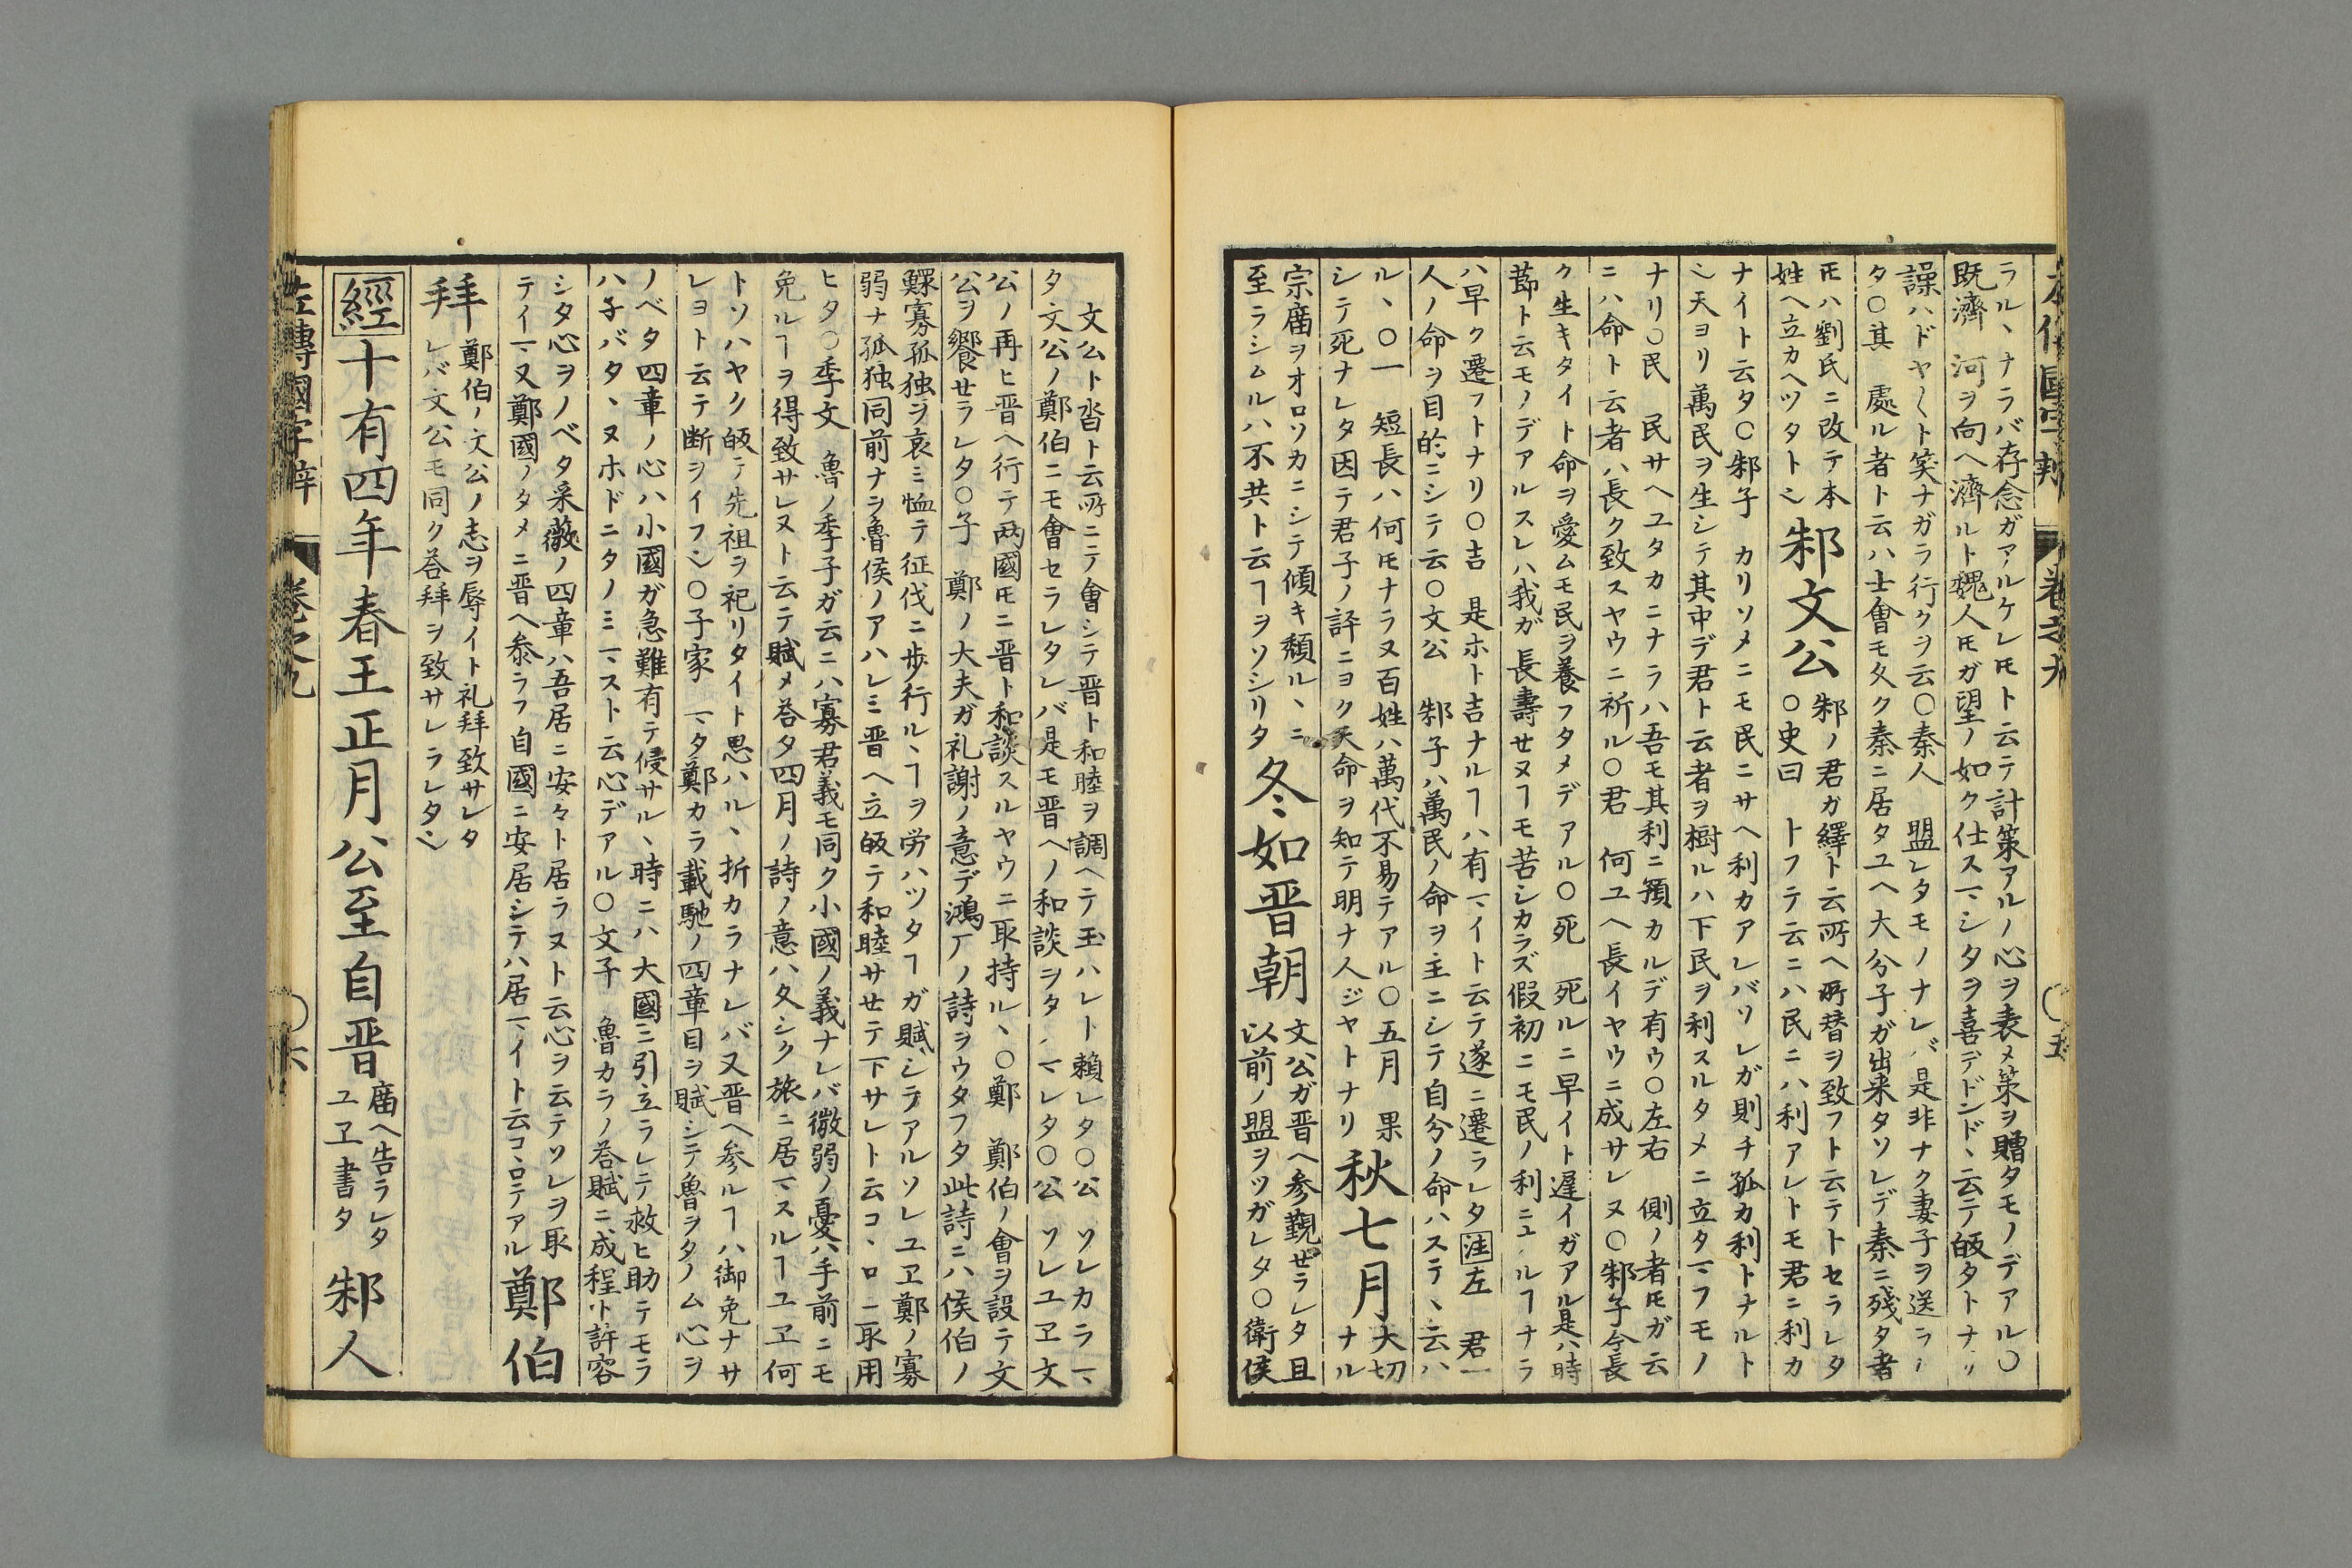 左傳國字辯 卷之九 ○五
ラル、ナラバ存念ガアルケレ𪜈ト云テ計策アルノ心ヲ表メ策ヲ贈タモノデアル○
既濟 河ヲ向ヘ濟ルト魏人𪜈ガ望ノ如ク仕スマシタヲ喜デドンド、云テ皈タトナリ
譟ハドヤ〱ト笑ナガラ行クヲ云○秦人 盟レタモノナレバ是非ナク妻子ヲ送ラレ
タ○其 處ル者ト云ハ士會モ久ク秦ニ居タユヘ大分子ガ出来タソレデ秦ニ残タ者
𪜈ハ劉氏ニ改テ本
姓ヘ立カヘツタトシ
邾文公
邾ノ君ガ繹ト云所ヘ所替ヲ致フト云テトセラレタ
○史曰 トフテ云ニハ民ニハ利アレトモ君ニ利カ
ナイト云タ○邾子 カリソメニモ民ニサヘ利カアレバソレガ則チ孤カ利トナルト
シ天ヨリ萬民ヲ生シテ其中デ君ト云者ヲ樹ルハ下民ヲ利スルタメニ立タマフモノ
ナリ○民 民サヘユタカニナラハ吾モ其利ニ預カルデ有ウ○左右 側ノ者𪜈ガ云
ニハ命ト云者ハ長ク致スヤウニ祈ル○君 何ユヘ長イヤウニ成サレヌ○邾子今長
ク生キタイト命ヲ愛ムモ民ヲ養フタメデアル○死 死ルニ早イト遅イガアル是ハ時
節ト云モノデアルスレハ我ガ長壽セヌヿモ苦シカラズ假初ニモ民ノ利ニユルヿナラ
ハ早ク遷フトナリ○吉 是ホト吉ナルヿハ有マイト云テ遂ニ遷ラレタ注左 君一
人ノ命ヲ目的ニシテ云○文公 邾子ハ萬民ノ命ヲ主ニシテ自分ノ命ハステ、云ハ
ル、○一 短長ハ何𪜈ナラヌ百姓ハ萬代不易テアル○五月 果
シテ死ナレタ因テ君子ノ評ニヨク天命ヲ知テ明ナ人ジヤトナリ
秋七月
大切
ナル
宗廟ヲオロソカニシテ傾キ頽ル、ニ
至ラシムルハ不共ト云ヿヲソシリタ
冬如晋朝
文公ガ晋ヘ参覲セラレタ且
以前ノ盟ヲツガレタ○衛侯
文公ト沓ト云所ニテ會シテ晋ト和睦ヲ調ヘテ玉ハレト頼レタ○公 ソレカラマ
タ文公ノ鄭伯ニモ會セラレタレバ是モ晋ヘノ和談ヲタノマレタ○公 ソレユヱ文
公ノ再ヒ晋ヘ行テ両國𪜈ニ晋ト和談スルヤウニ取持ル、○鄭 鄭伯ノ會ヲ設テ文
公ヲ饗セラレタ○子 鄭ノ大夫ガ礼謝ノ意デ鴻厂ノ詩ヲウタフタ此詩ニハ侯伯ノ
鰥寡孤独ヲ哀ミ恤テ征伐ニ歩行ル、ヿヲ労ハツタヿガ賦シテアルソレユヱ鄭ノ寡
弱ナ孤独同前ナヲ魯侯ノアハレミ晋ヘ立皈テ和睦サセテ下サレト云コ、ロニ取用
ヒタ○季文 魯ノ季子ガ云ニハ寡君義モ同ク小國ノ義ナレバ微弱ノ憂ハ手前ニモ
免ルヿヲ得致サレヌト云テ賦メ荅タ四月ノ詩ノ意ハ久シク旅ニ居マスルヿユヱ何
トソハヤク皈テ先祖ヲ祀リタイト思ハル、折カラナレバ又晋ヘ参ルヿハ御免ナサ
レヨト云テ断ヲイフシ○子家 マタ鄭カラ載馳ノ四章目ヲ賦シテ魯ヲタノム心ヲ
ノベタ四章ノ心ハ小國ガ急難有テ侵サル、時ニハ大國ニ引立ラレテ救ヒ助テモラ
ハ子バタ、ヌホドニタノミマスト云心デアル○文子 魯カラノ荅賦ニ成程ト許容
シタ心ヲノベタ采薇ノ四章ハ吾居ニ安々ト居ラヌト云心ヲ云テソレヲ取
テイマ又鄭國ノタメニ晋ヘ参ラフ自國ニ安居シテハ居マイト云コ、ロテアル
鄭伯
拜
鄭伯ノ文公ノ志ヲ辱イト礼拜致サレタ
レバ文公モ同ク荅拜ヲ致サレラレタシ
經十有四年春王正月公至自晋
廟ヘ告ラレタ
ユヱ書タ
邾人
左傳國字辯 卷之九 ○六